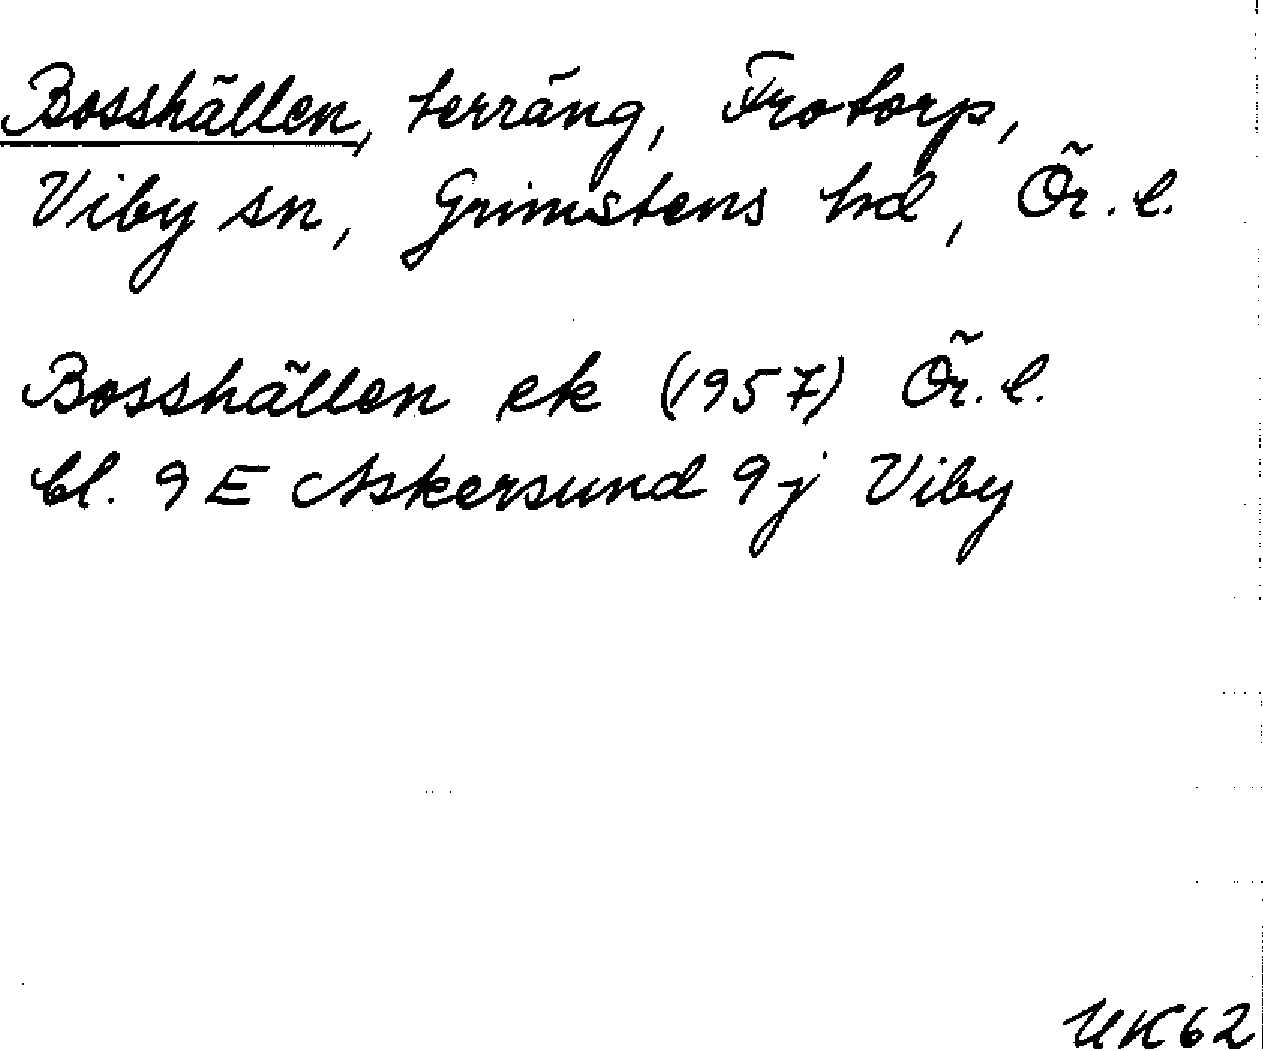 Bosshällen, terräng, Frotorp,
Viby sn, Grimstens hd, Ör. l.
Bosshällen ek (1957) Ör. l.
bl. 9 E Askersund 9j Viby
UK62